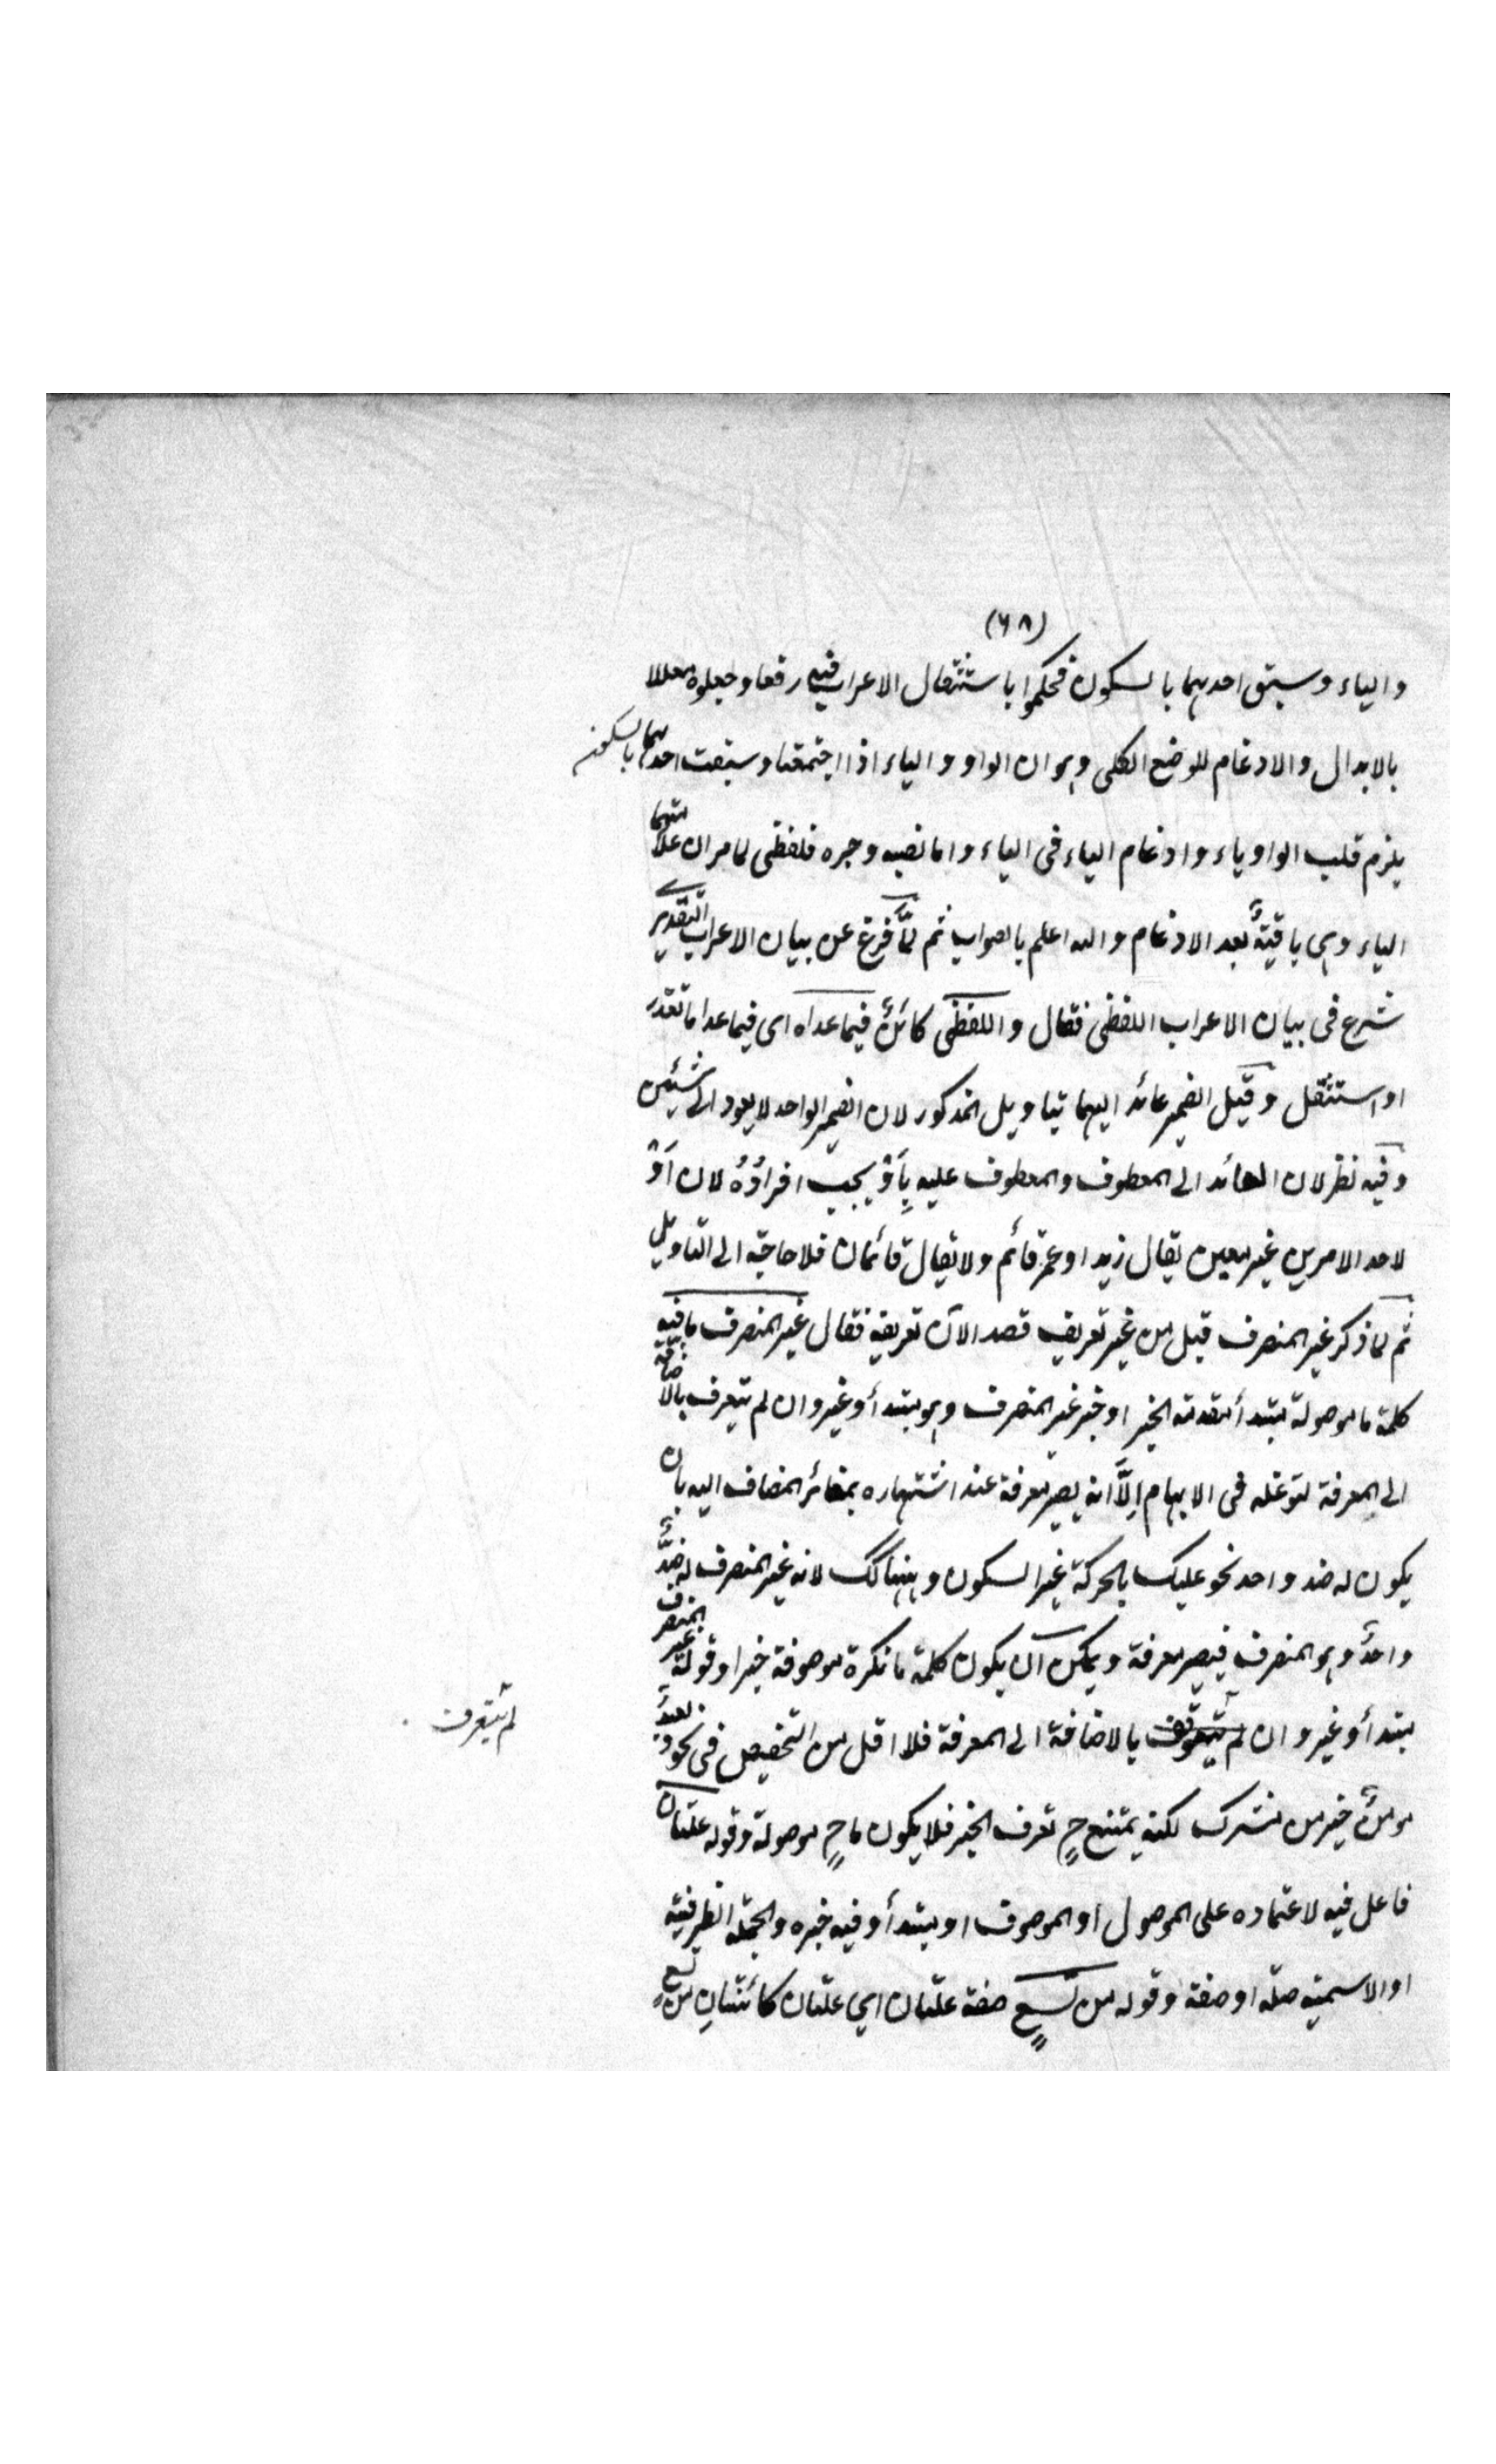 (٦٨)
والياء وسبق احدهما بالسكون فحكموا باستثقال الاعراب فيه رفعا وجعلوه معللا
بالابدال والادغام للوضع الكلى وهو ان الواو والياء اذا اجتمعتا وسبقت احدهما بالسكون
يلزم قلب الواو ياء وادغام الياء فى الياء واما نصبه وجره فلفظى لما مر ان علامتهما
الياء وهى باقيةٌ بعد الادغام والله اعلم بالصواب ثم لمَّا فرغ عن بيان الاعراب التقديرى
شرع فى بيان الاعراب اللفظى فقال واللفظى كائنٌ فيما عداه اى فيما عدا ما تعذر
او استثقل وقيل الضمير عائد اليهما بتاويل المذكور لان الضمير الواحد لا يعود الى شيئين
وفيه نظر لان العائد الى المعطوف والمعطوف عليه بِاَوْ يجب افرادُهُ لان اَوْ
لاحد الامرين غير معين يقال زيد او عمر قائم ولا يقال قائمان فلا حاجة الى التاويل
ثم لما ذكر غير المنصرف قبل من غير تعريف قصد الآن تعريفه فقال غير المنصرف ما فيه
كلمة ما موصولة مبتدأ تقدمه الخبر او خبر غير المنصرف وهو مبتدأ وغير وان لم يتعرف بالاضافة
الى المعرفة لتوغله فى الابهام اِلَّا انه يصير معرفة عند اشتهاره بمغائر المضاف اليه بان
يكون له ضد واحد نحو عليك بالحركة غير السكون وههنا كك لانه غير المنصرف له ضدٌّ
واحدٌ وهو المنصرف فيصير معرفة ويمكن ان يكون كلمة ما نكرة موصوفة خبرا وقوله غير المنصرف
مبتدأ وغير وان لم يتعرف بالاضافة الى المعرفة فلا اقل من التخصيص فى نحو لعبدٌ
لم يتعرف
مومنٌ خير من مشرك لكنه يمتنع حٍ تعرف الخبر فلا يكون ما حٍ موصولة وقوله علتان
فاعل فيه لاعتماده على الموصول او الموصوف او مبتدأ وفيه خبره والجملة الظرفية
او الاسمية صلة او صفة وقوله من تسعٍ صفة علتان اى علتان كائنتانِ من تسعٍ